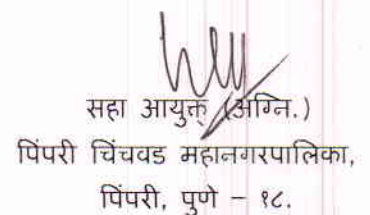 सहा आयुक्त (अग्नि.)
पिंपरी चिंचवड महानगरपालिका,
पिंपरी, पुणे – १८.